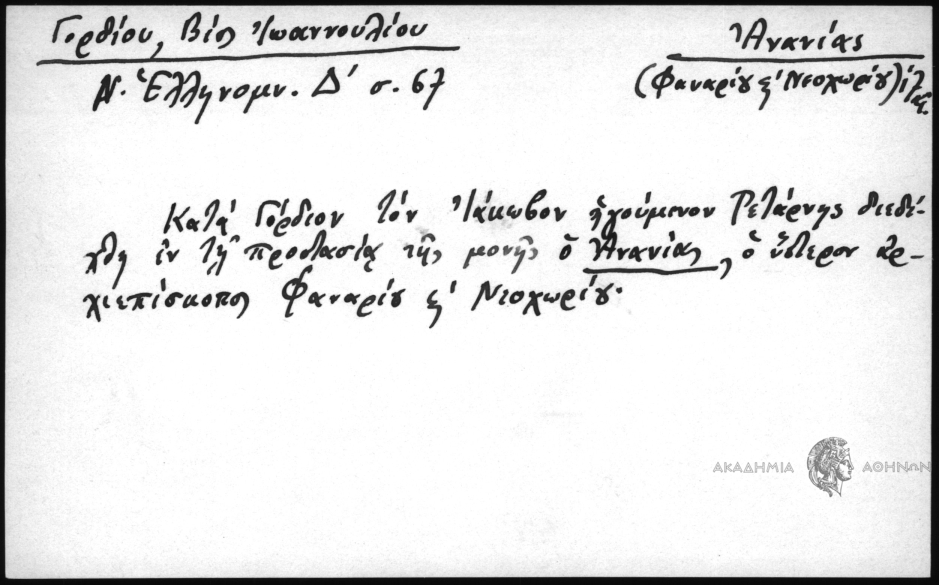 Γορδίου, Βίος Ἰωαννουλίου
Ἀνανίας
Ν. Ἑλληνομν. Δ' σ. 67
(Φαναρίου ϗ' Νεοχωρίου) ιζ
Κατὰ Γόρδιον τὸν Ἰάκωβον ἡγούμενον Ρετάρνης διεδέ-
χθη ἐν τῇ προστασίᾳ τῆς μονῆς ὁ Ἀνανίας, ὁ ὕστερον ἀρ-
χιεπίσκοπος Φαναρίου ϗ' Νεοχωρίου.
ΑΚΑΔΗΜΙΑ ΑΘΗΝΩΝ